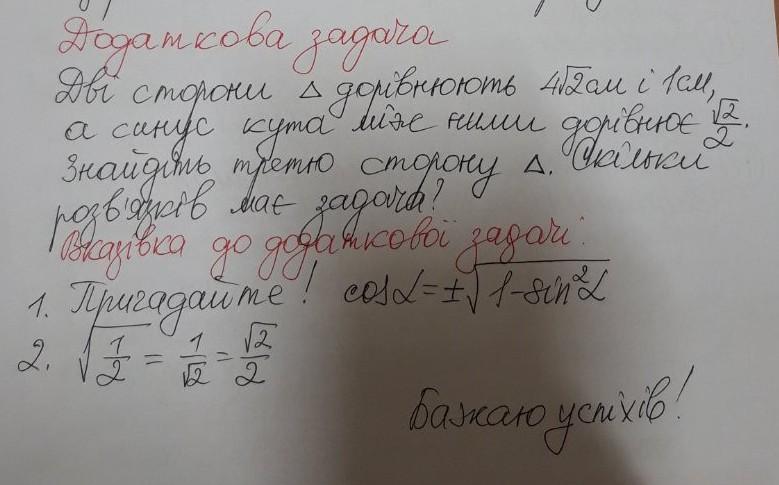 Додаткова задача
Дві сторони △ дорівнюють 4√2 см і 1 см,
а синус кута між ними дорівнює √2/2.
Знайдіть третю сторону △. Скільки
розв'язків має задача?
Вказівка до додаткової задачі:
1. Пригадайте! cosα = ±√(1-sin²α)
2. √(1/2) = 1/√2 = √2/2
Бажаю успіхів!